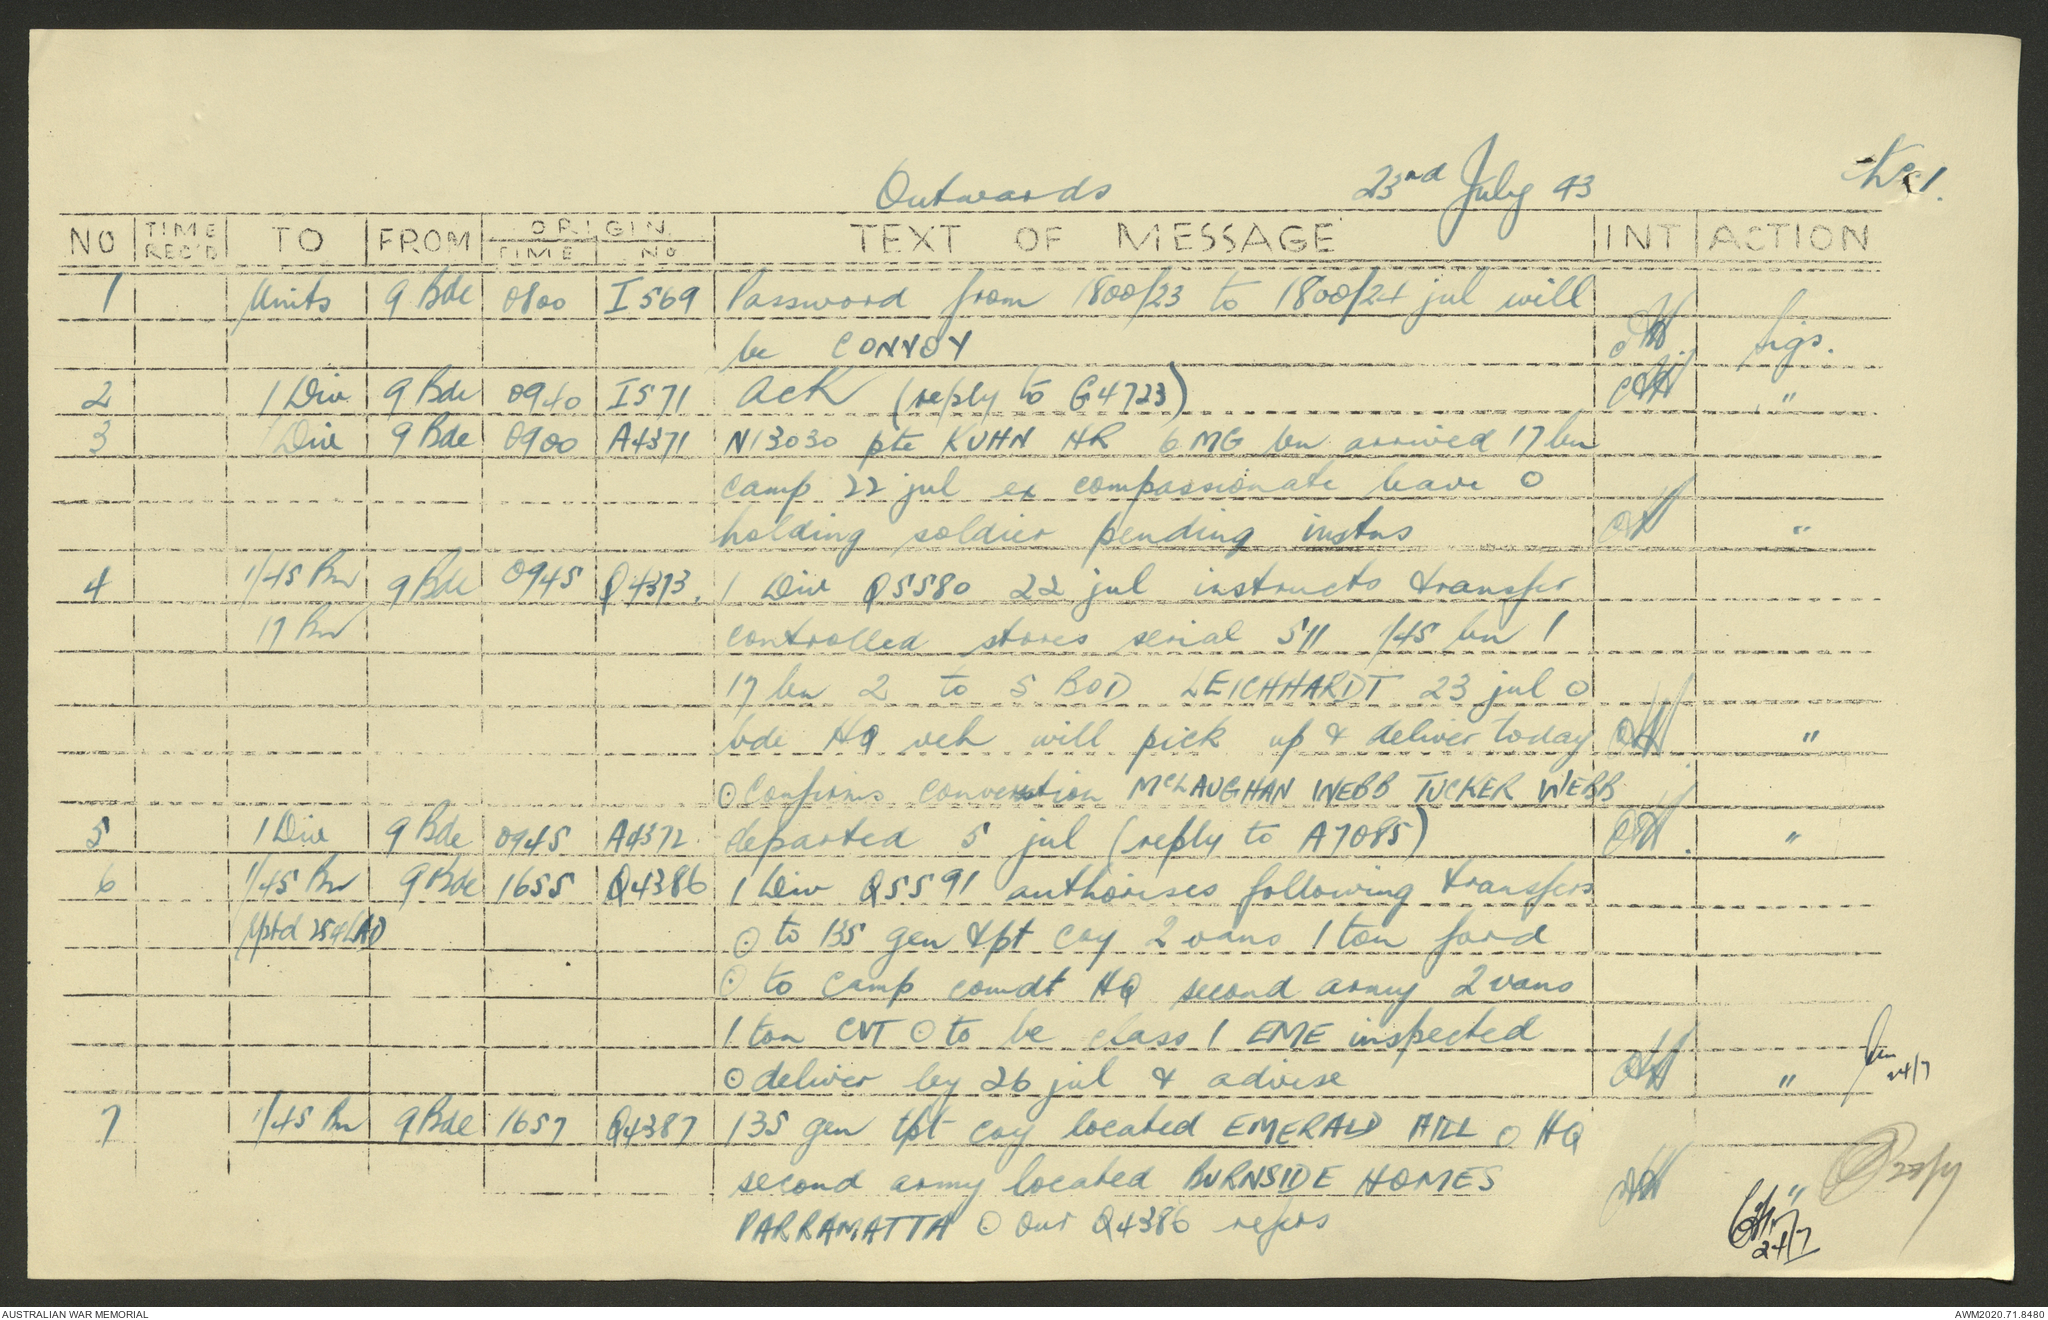 Outwards 23rd July 43 No 1.
NO TIME REC'D TO FROM ORIGIN TIME NO TEXT OF MESSAGE INT ACTION
1 Units 9 Bde 0800 I569 Password from 1800/23 to 1800/24 jul will
be CONVOY Sigs.
2 1 Div 9 Bde 0940 I571 Ack (reply to G4723) "
3 1 Div 9 Bde 0900 A4371 N13030 pte KUHN HR 6 MG bn arrived 17 bn
camp 22 jul ex compassionate leave O
holding soldier pending instns "
4 1/45 Bn 9 Bde 0945 Q4373. 1 Div Q5580 22 jul instructs transfer
17 Bn controlled stores serial 511 1/45 bn 1
17 bn 2 to 5 BOD LEICHHARDT 23 jul O
bde HQ veh will pick up & deliver today "
O Confirms conversation McLAUGHAN WEBB TUCKER WEBB
5 1 Div 9 Bde 0945 A4372 departed 5 jul (reply to A7085) "
6 1/45 Bn 9 Bde 1655 Q4386 1 Div Q5591 authorises following transfers
rptd 254 LAD O to 135 gen tpt coy 2 vans 1 ton ford
O to camp comdt HQ second army 2 vans
1 ton CVT O to be class 1 EME inspected
O deliver by 26 jul & advise " 24/7
7 1/45 Bn 9 Bde 1657 Q4387 135 gen tpt coy located EMERALD HILL O HQ
second army located BURNSIDE HOMES "
PARRAMATTA O our Q4386 refers 24/7
AUSTRALIAN WAR MEMORIAL AWM2020.71.8480